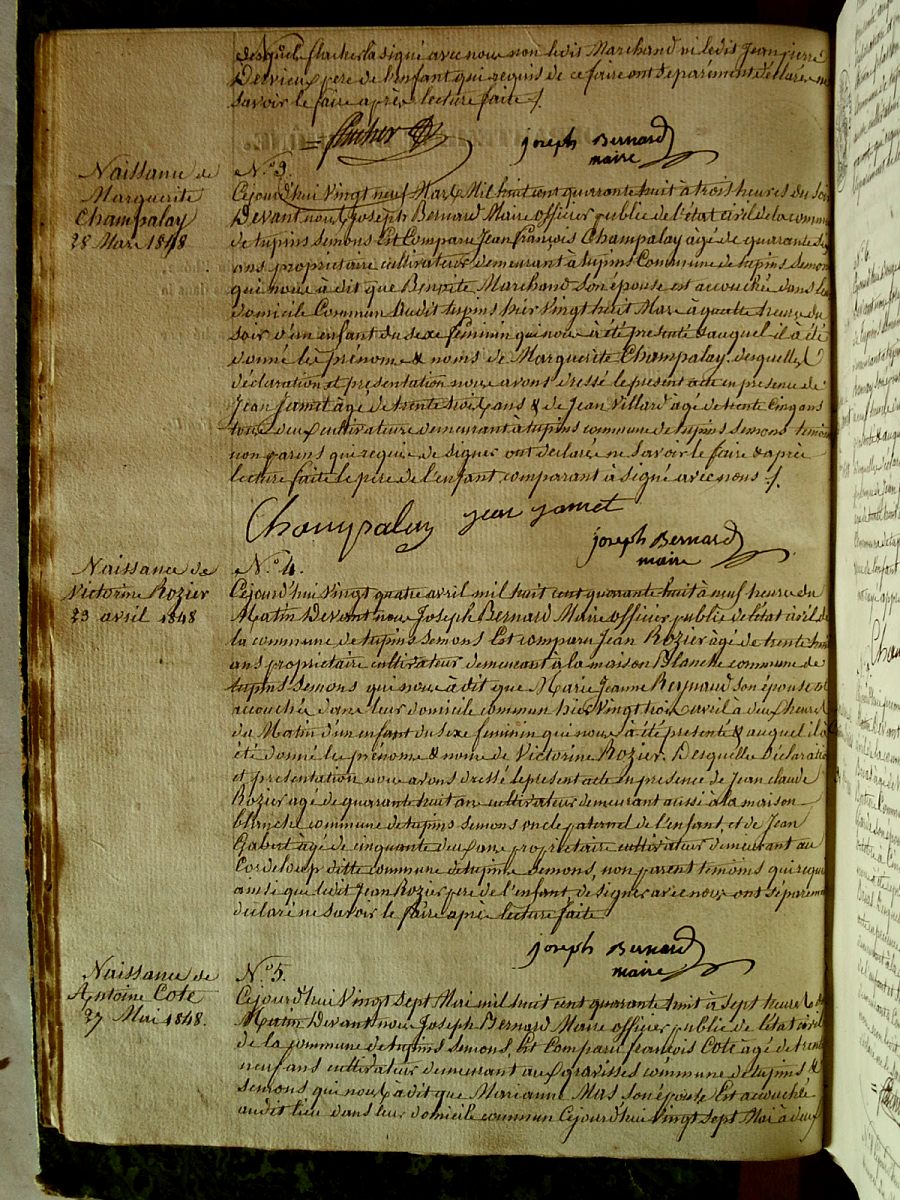 desquels flacher la signé avec nous non ledit Marchand ni ledit Jean pierre
Dervieux pere de l'enfant qui requis de ce faire ont séparément déclaré ne
savoir le faire après lecture faite /.
= flacher
joseph Bernard
maire
Naissance de
Marguerite
Champalay
28 Mars 1848
N.o 3.
Cejourd'hui Vingt neuf Mars Mil huit cent quarante huit à trois heures du soir
Devant nous Joseph Bernard Maire officier public de l'état civil de la commune
de tupins semons Est Comparu Jean françois Champalay âgé de quarante
ans propriétaire cultivateur demeurant à tupins Commune de tupins semons
qui nous à dit que Benoite Marchand son épouse est accouchée dans leur
domicile Commun Dudit tupins hier vingt huit Mars à quatre heures du
soir d'un enfant du sexe féminin qui nous à été presenté & auquel il à été
donné les prénoms & noms de Marguerite Champalay. desquelles
déclaration et présentation nous avons dressé le présent acte en presence de
Jean Jamet âgé de trente trois ans & de Jean Villard âgé de trente Cinq ans
tous deux cultivateurs demeurant à tupins commune de tupins semons temoins
non parens qui requis de signer ont declaré ne savoir le faire & après
lecture faite le père de l'enfant comparant à signé avec nous /.
Champalay jean jamet
joseph Bernard
maire
Naissance de
Victorine Rozier
23 avril 1848
N.o 4.
Cejourd'hui Vingt quatre avril mil huit cent quarante huit à neuf heures du
Matin Devant nous Joseph Bernard Maire officier public de l'état civil de
la commune de tupins semons Est comparu Jean Rozier âgé de trente huit
ans propriétaire cultivateur demeurant à la maison Blanche commune de
tupins semons qui nous à dit que Marie Jeanne Reynaud son épouse est
accouchée dans leur domicile commun hier Vingt trois avril à deux heures
du Matin d'un enfant du sexe feminin qui nous à été presenté & auquel il à
été donné les prénoms & noms de Victorine Rozier. Desquelles Déclaration
et presentation nous avons dressé le present acte en presence de Jean claude
Rozier agé de quarante huit ans cultivateur demeurant aussi à la maison
blanche commune de tupins semons oncle paternel de l'enfant, et de Jean
Gabert âgé de cinquante deux ans propriétaire cultivateur demeurant au
Cordeloup ditte commune de tupins semons, non parent temoins qui requis
ainsi que ledit Jean Rozier pere de l'enfant de signer avec nous ont séparement
declaré ne savoir le faire après lecture faite
joseph Bernard
maire
Naissance de
Antoine Cote
27 Mai 1848.
N.o 5.
Cejourd'hui Vingt sept Mai mil huit cent quarante huit à sept heures du
Matin Devant nous Joseph Bernard Maire officier public de l'état civil
de la commune de tupins semons, Est Comparu françois Cote âgé de trente
neuf ans cultivateur demeurant aux gravisses commune de tupins &
semons qui nous à dit que Marianne Mas son épouse Est accouchée
audit lieu dans leur domicile commun Cejourd'hui Vingt sept Mai à deux